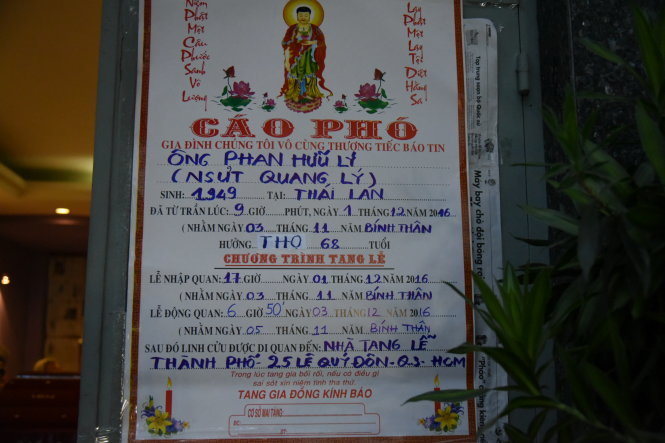 Niệm Phật Một Câu Phước Sánh Vô Lượng
Lạy Phật Một Lạy Tội Diệt Hằng Sa
CÁO PHÓ
GIA ĐÌNH CHÚNG TÔI VÔ CÙNG THƯƠNG TIẾC BÁO TIN
ÔNG PHAN HỮU LÝ
(NSƯT QUANG LÝ)
SINH: 1949 TẠI: THÁI LAN
ĐÃ TỪ TRẦN LÚC: 9 GIỜ PHÚT, NGÀY 1 THÁNG 12 NĂM 2016
( NHẰM NGÀY 03 THÁNG 11 NĂM BÍNH THÂN
HƯỞNG THỌ 68 TUỔI
CHƯƠNG TRÌNH TANG LỄ
LỄ NHẬP QUAN: 17 GIỜ NGÀY 01 THÁNG 12 NĂM 2016
( NHẰM NGÀY 03 THÁNG 11 NĂM BÍNH THÂN
LỄ ĐỘNG QUAN: 6 GIỜ 50' NGÀY 03 THÁNG 12 NĂM 2016
( NHẰM NGÀY 05 THÁNG 11 NĂM BÍNH THÂN
SAU ĐÓ LINH CỬU ĐƯỢC DI QUAN ĐẾN: NHÀ TANG LỄ
THÀNH PHỐ 25 LÊ QUÝ ĐÔN-Q3-HCM
Trong lúc tang gia bối rối, nếu có điều gì
sai sót xin niệm tình tha thứ.
TANG GIA ĐỒNG KÍNH BÁO
CƠ SỞ MAI TÁNG:
ĐC:
ĐT:
Máy bay chở đội bóng